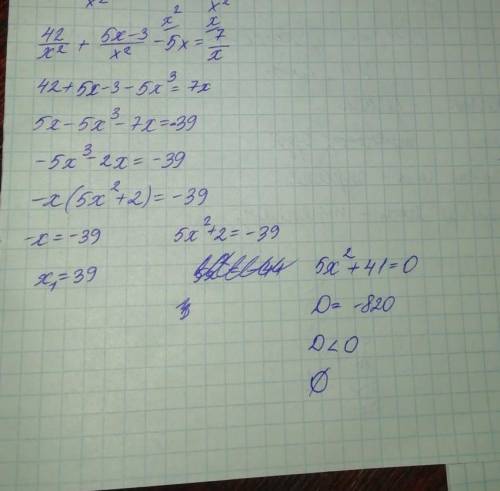 x² x²
42/x² + 5x-3/x² - 5x = 7/x
x² x
42+5x-3-5x³=7x
5x-5x³-7x=-39
-5x³-2x=-39
-x(5x²+2)=-39
-x=-39 5x²+2=-39
x₁=39 5x²+41=0
D=-820
D<0
∅